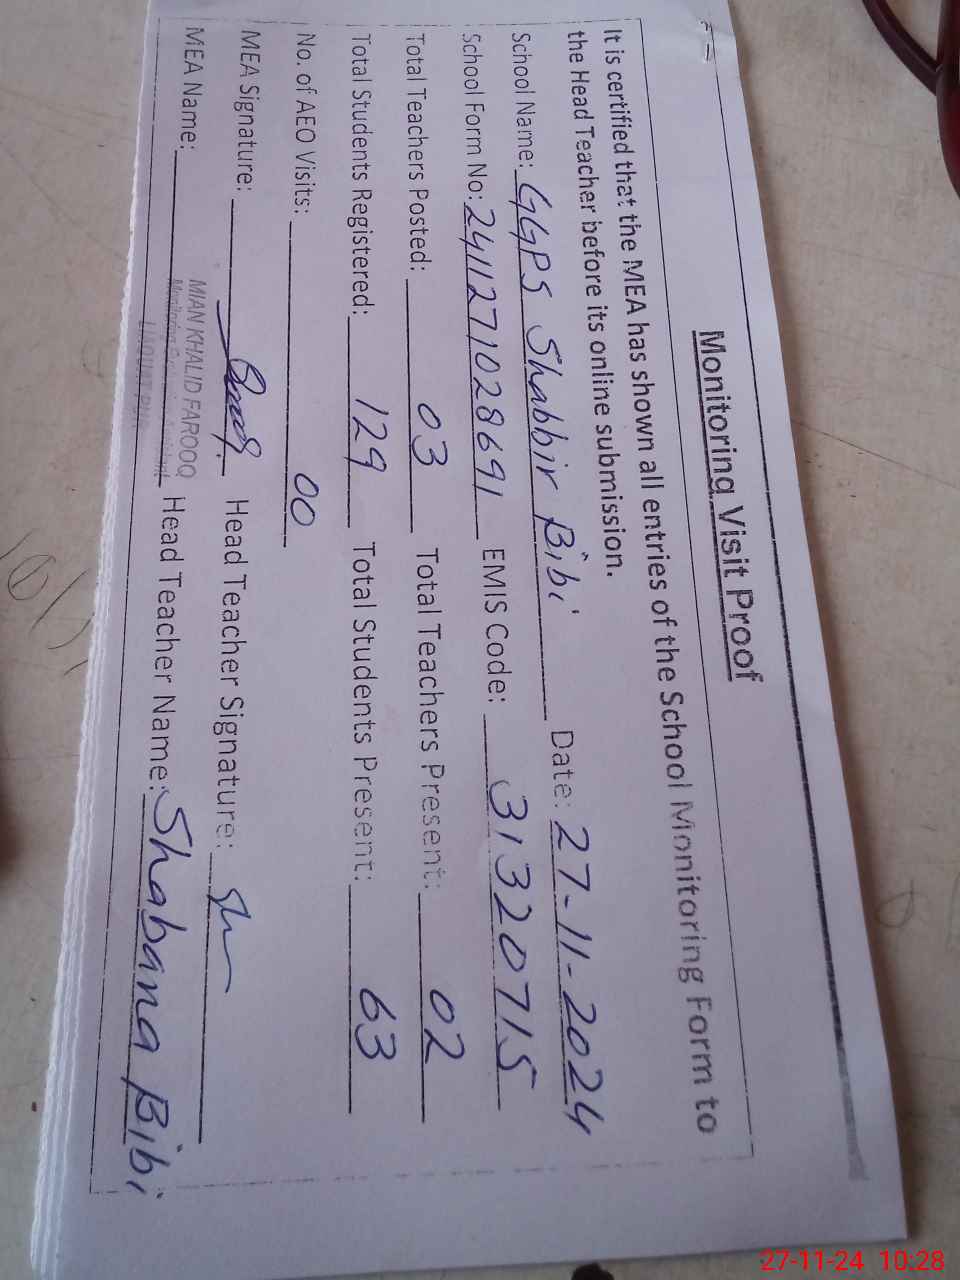 Monitoring Visit Proof
It is certified that the MEA has shown all entries of the School Monitoring Form to
the Head Teacher before its online submission.
School Name: GGPS Shabbir Bibi Date: 27-11-2024
School Form No: 2411271028691 EMIS Code: 31320715
Total Teachers Posted: 03 Total Teachers Present: 02
Total Students Registered: 129 Total Students Present: 63
No. of AEO Visits: 00
MEA Signature: Head Teacher Signature:
MEA Name: MIAN KHALID FAROOQ Head Teacher Name: Shabana Bibi
27-11-24 10:28